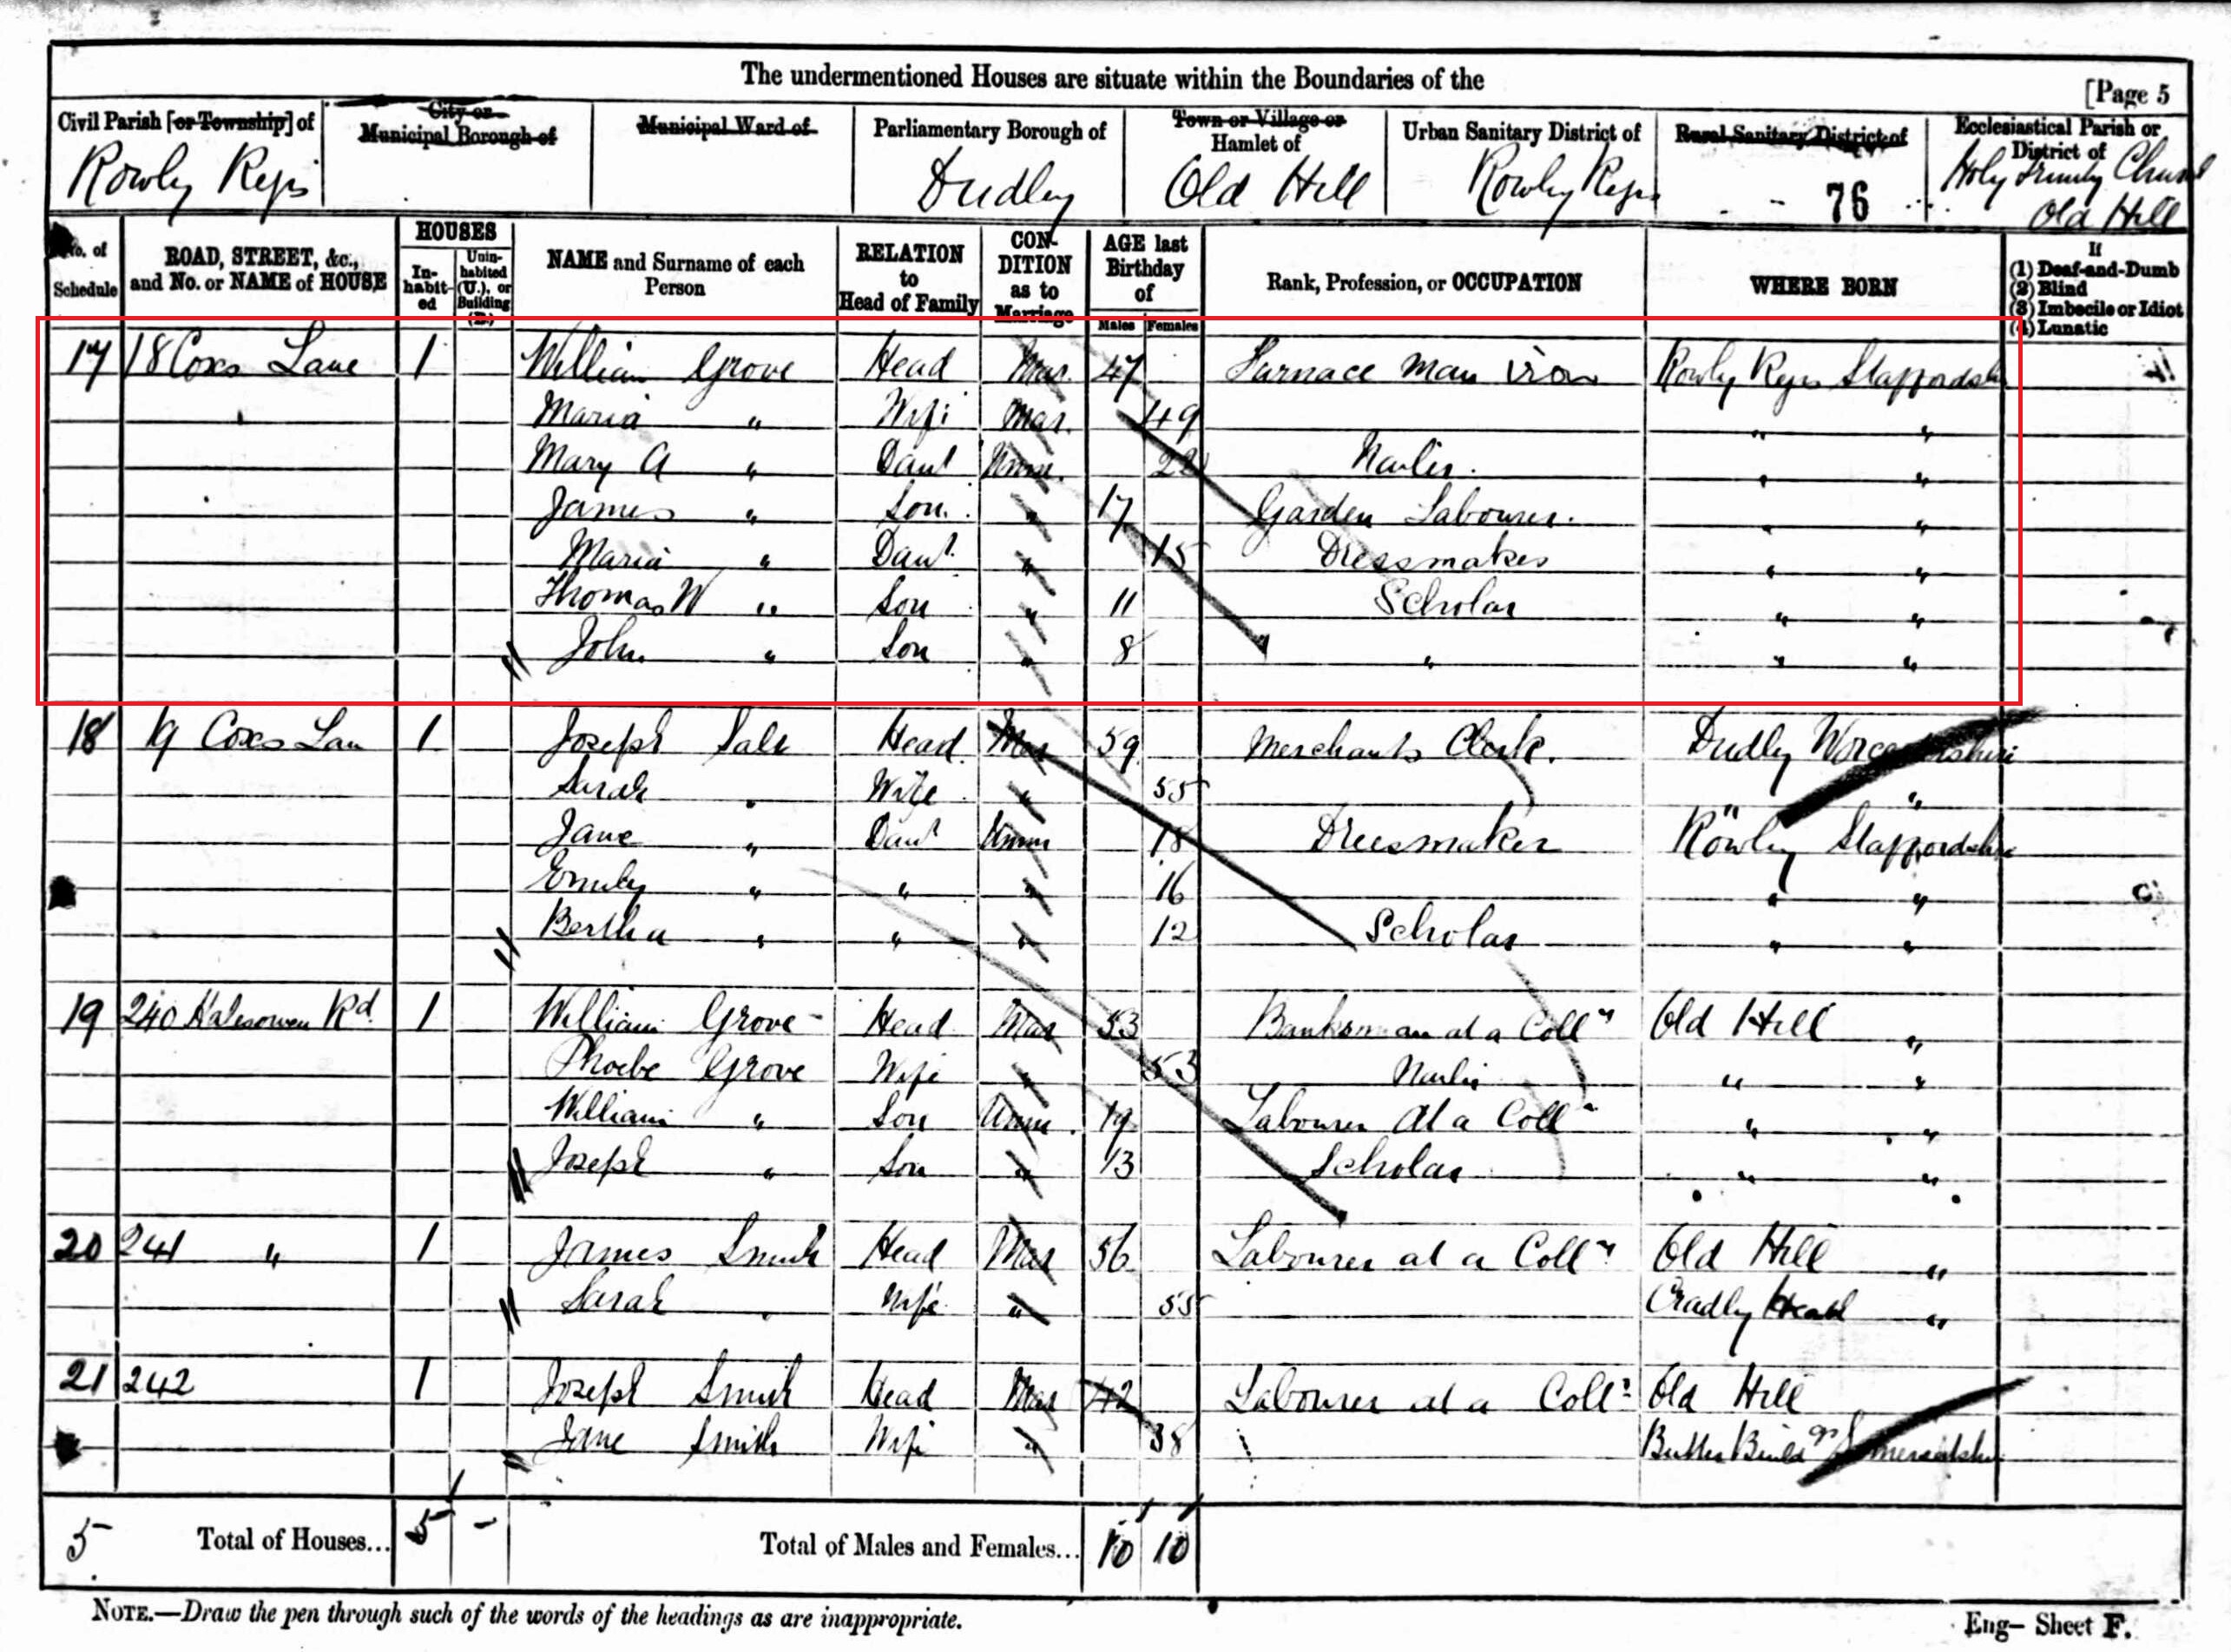 The undermentioned Houses are situate within the Boundaries of the
[Page 5
Civil Parish [or Township] of
City or Municipal Borough of
Municipal Ward of
Parliamentary Borough of
Town or Village or Hamlet of
Urban Sanitary District of
Rural Sanitary District of
Ecclesiastical Parish or District of
Rowly Regis Dudley Old Hill Rowley Regis 76 Holy Trinity Church Old Hill
No. of Schedule
ROAD, STREET, &c., and No. or NAME of HOUSE
HOUSES
Inhabited
Uninhabited (U.), or Building (B.)
NAME and Surname of each Person
RELATION to Head of Family
CONDITION as to Marriage
AGE last Birthday of
Males Females
Rank, Profession, or OCCUPATION
WHERE BORN
If
(1) Deaf-and-Dumb
(2) Blind
(3) Imbecile or Idiot
(4) Lunatic
17 18 Coxs Lane 1 William Grove Head Mar. 47 Furnace Man iron Rowly Regis Staffordsh
Maria " Wife Mar. 49 " "
Mary A " Daur Unm. 22 Nailer. " "
James " Son. " 17 Garden Labourer. " "
Maria " Daur. " 15 Dressmaker " "
Thomas W " Son " 11 Scholar " "
John " Son " 8 " " "
18 19 Coxs Lan 1 Joseph Head Mar 59 Merchants Clerk. Dudley Worcestershire
Sarah " Wife " 55 " "
Jane " Daur Unm 18 Dressmaker Rowley Staffordshire
Emily " " " 16 " "
Bertha " " " 12 Scholar " "
19 240 Halesowen Rd. 1 William Grove Head Mar 53 Banksman at a Collry Old Hill "
Phoebe Grove Wife " 53 Nailer " "
William " Son Unm. 19 Labourer At a Coll " "
Joseph " Son " 13 Scholar " "
20 241 " 1 James Smith Head Mar 56 Labourer at a Colly Old Hill "
Sarah " Wife " 55 Cradley Heath "
21 242 1 Joseph Smith Head Mar 42 Labourer at a Coll Old Hill
Jane Smith Wife " 38 Somersetshire
5 Total of Houses... 5 - Total of Males and Females... 10 10
NOTE.—Draw the pen through such of the words of the headings as are inappropriate.
Eng— Sheet F.